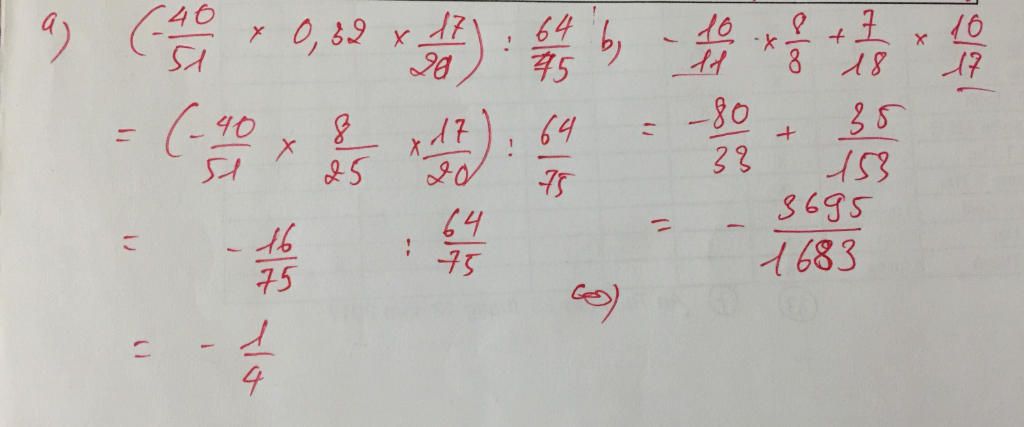 a) (-40/51 × 0,32 × 17/20) : 64/75
= (-40/51 × 8/25 × 17/20) : 64/75
= -16/75 : 64/75
= -1/4
b, -10/11 × 8/3 + 7/18 × 10/17
= -80/33 + 35/153
= -3695/1683